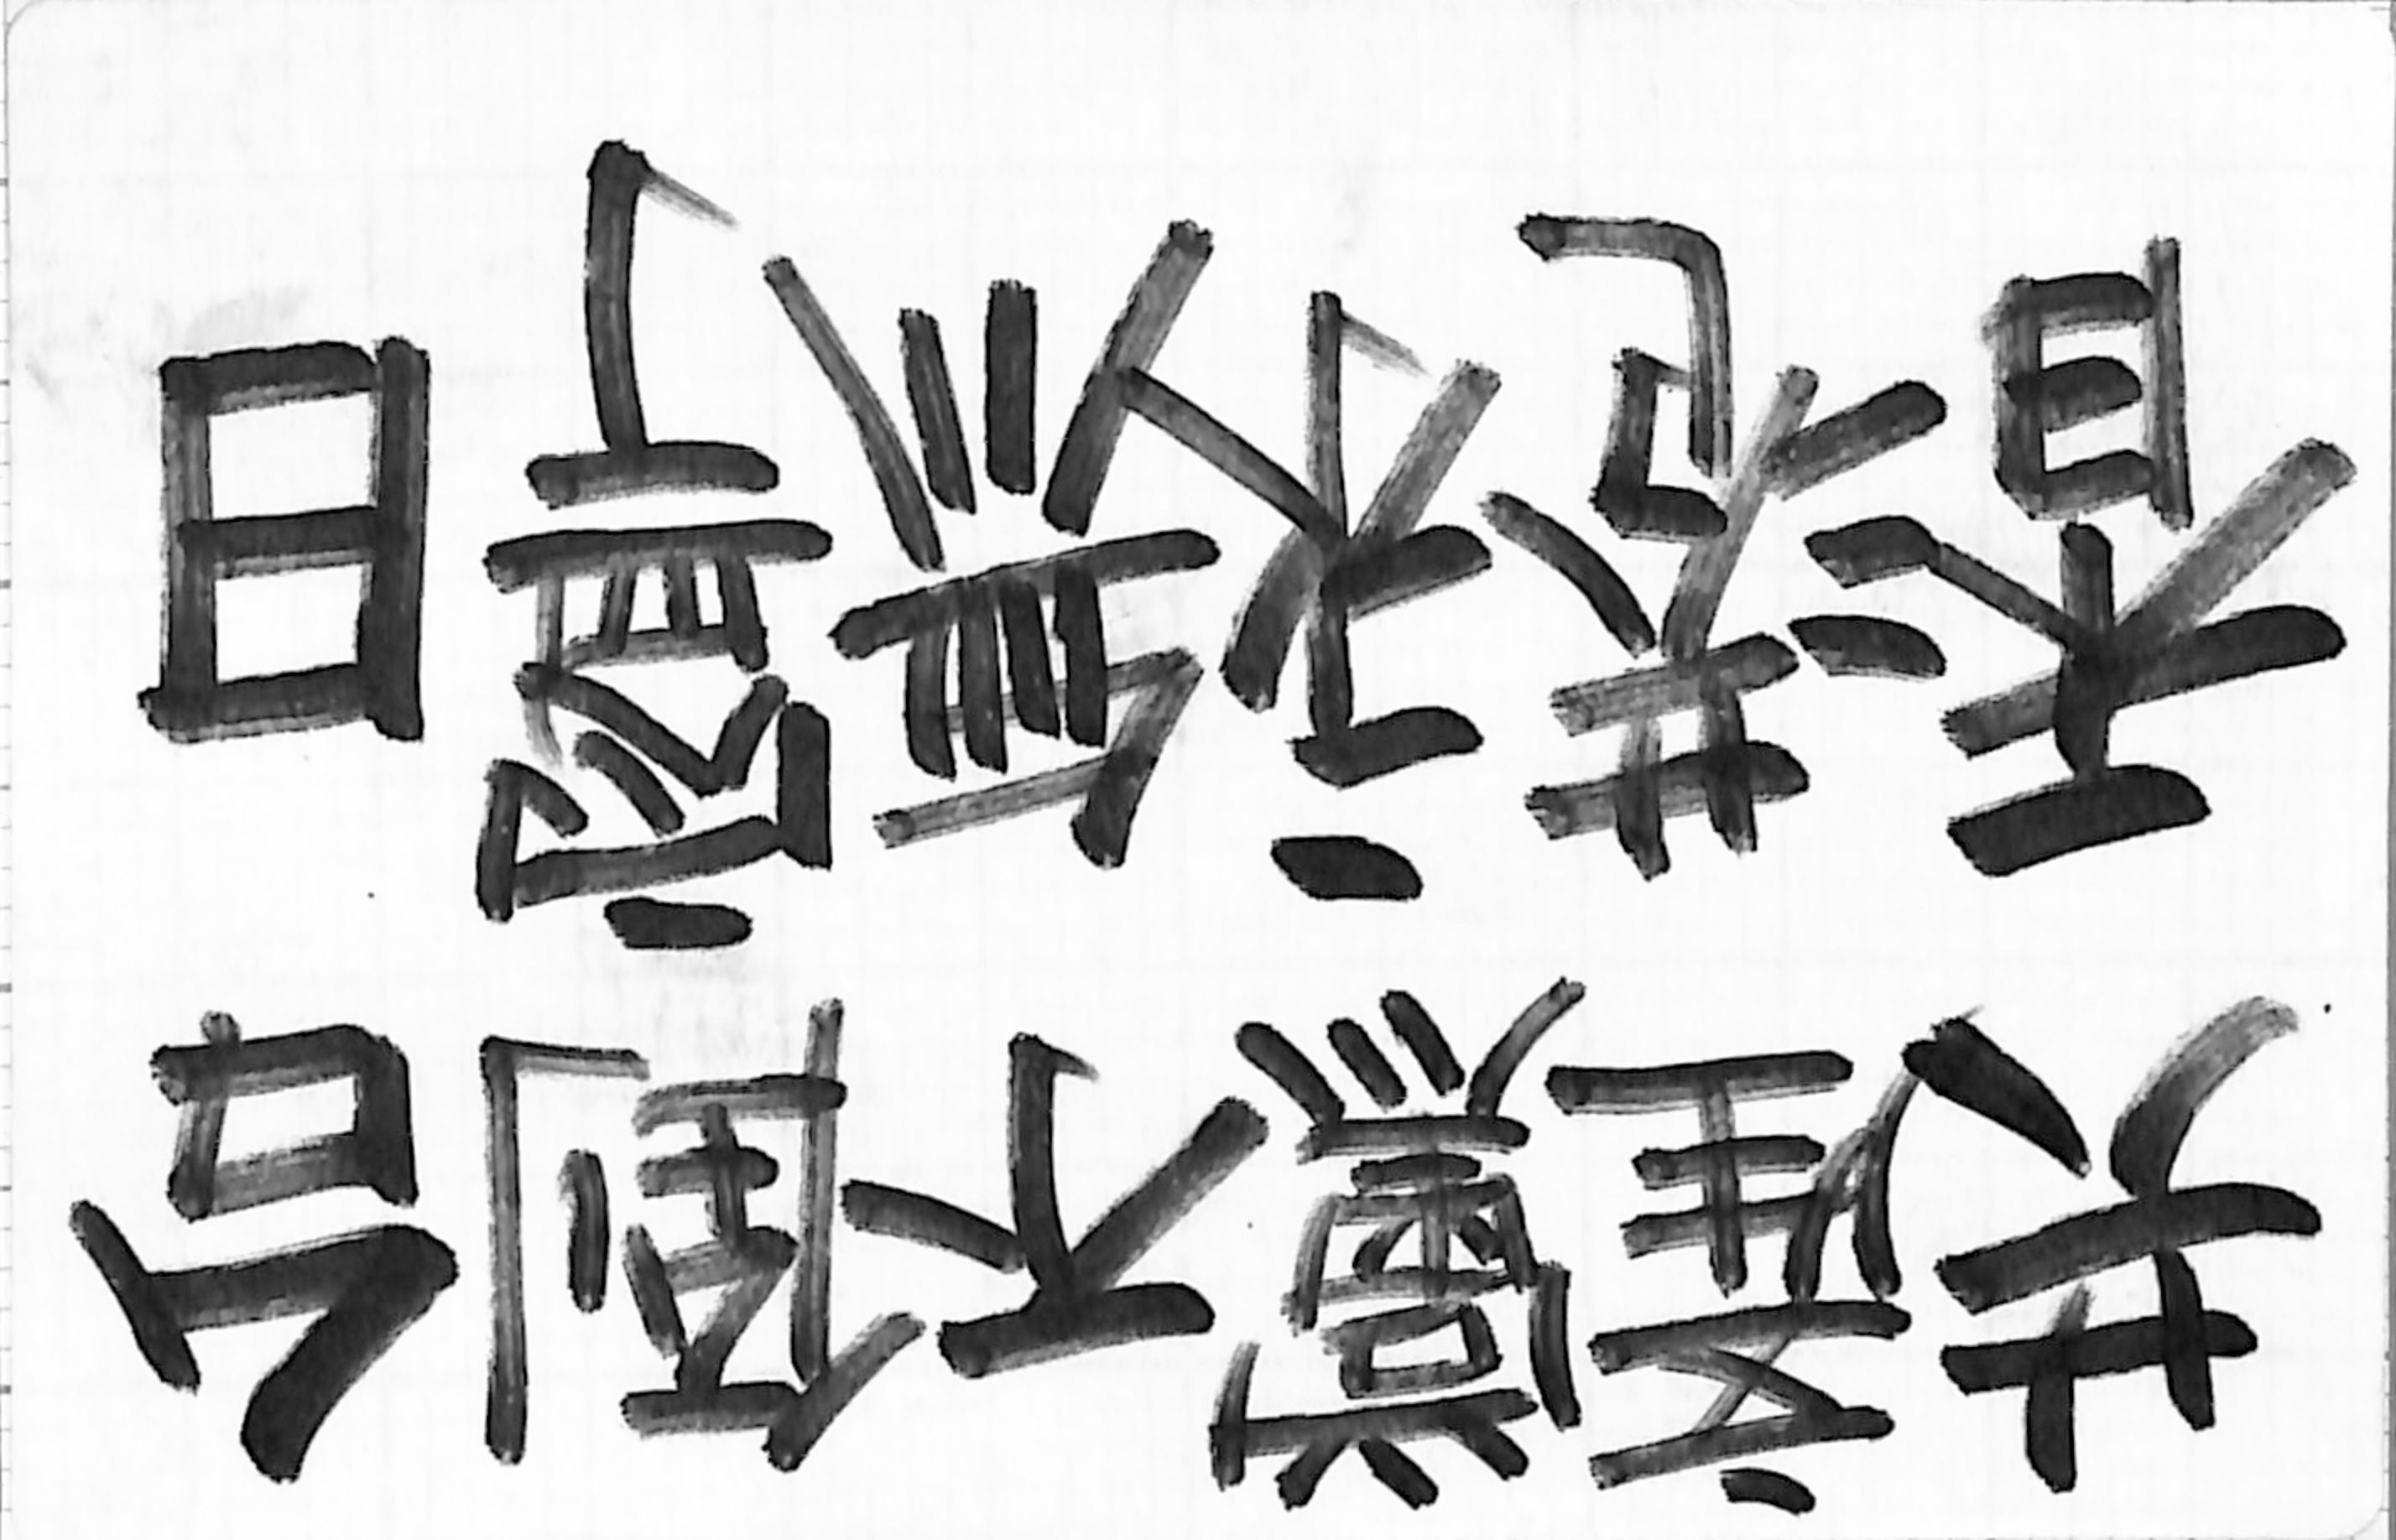 共產黨不倒台
香港永無寧日